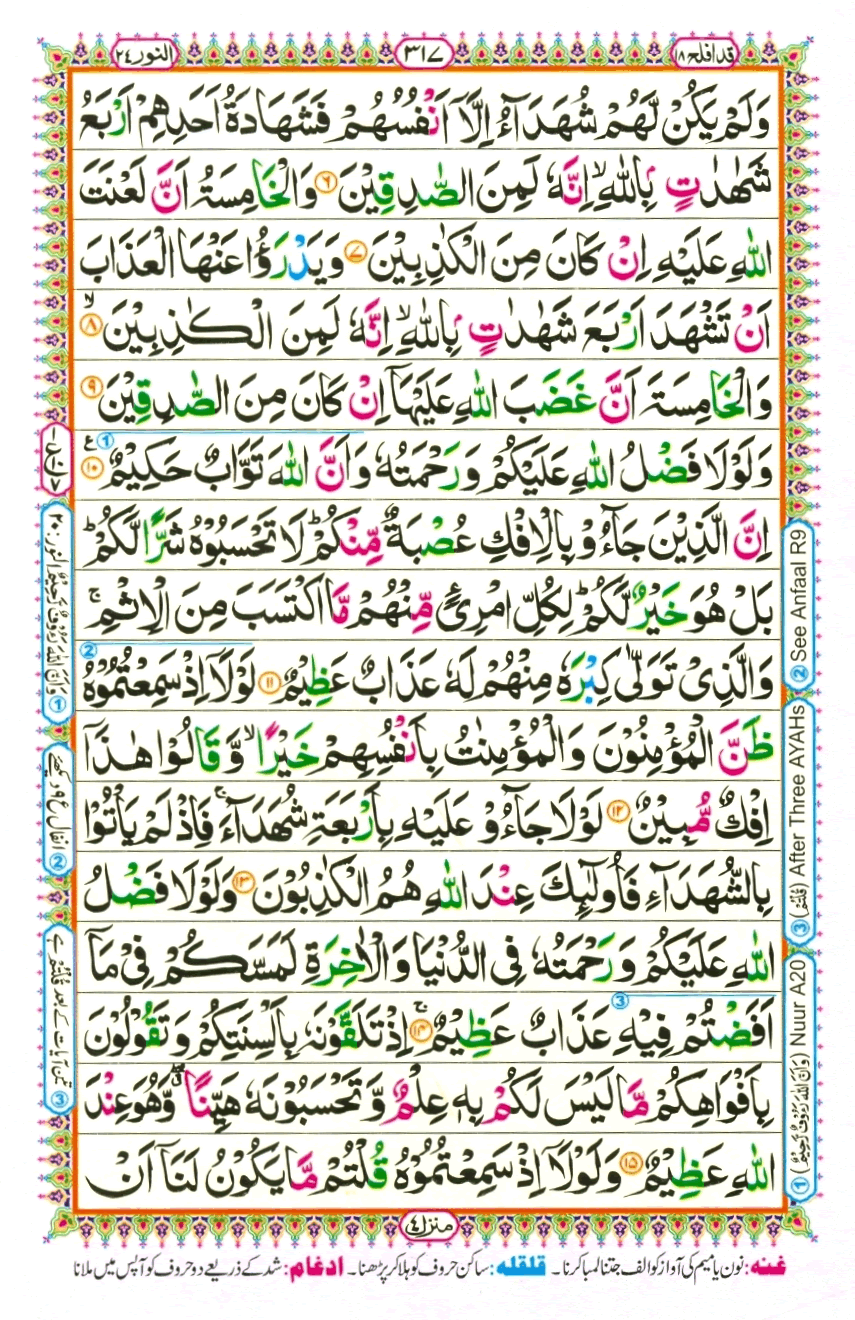 قد افلح ١٨
٣١٧
النور ٢٤
وَلَمْ يَكُنْ لَّهُمْ شُهَدَآءُ اِلَّاۤ اَنْفُسُهُمْ فَشَهَادَةُ اَحَدِهِمْ اَرْبَعُ
شَهٰدٰتٍۭ بِاللّٰهِۙ اِنَّهٗ لَمِنَ الصّٰدِقِيْنَ ٦ وَالْخَامِسَةُ اَنَّ لَعْنَتَ
اللّٰهِ عَلَيْهِ اِنْ كَانَ مِنَ الْكٰذِبِيْنَ ٧ وَيَدْرَؤُا عَنْهَا الْعَذَابَ
اَنْ تَشْهَدَ اَرْبَعَ شَهٰدٰتٍۭ بِاللّٰهِۙ اِنَّهٗ لَمِنَ الْكٰذِبِيْنَ ٨ۙ
وَالْخَامِسَةَ اَنَّ غَضَبَ اللّٰهِ عَلَيْهَاۤ اِنْ كَانَ مِنَ الصّٰدِقِيْنَ ٩
وَلَوْلَا فَضْلُ اللّٰهِ عَلَيْكُمْ وَرَحْمَتُهٗ وَاَنَّ اللّٰهَ تَوَّابٌ حَكِيْمٌ ١٠ ع ①
اِنَّ الَّذِيْنَ جَآءُوْ بِالْاِفْكِ عُصْبَةٌ مِّنْكُمْؕ لَا تَحْسَبُوْهُ شَرًّا لَّكُمْؕ
بَلْ هُوَ خَيْرٌ لَّكُمْؕ لِكُلِّ امْرِئٍ مِّنْهُمْ مَّا اكْتَسَبَ مِنَ الْاِثْمِۚ
وَالَّذِيْ تَوَلّٰى كِبْرَهٗ مِنْهُمْ لَهٗ عَذَابٌ عَظِيْمٌ ١١ لَوْلَاۤ اِذْ سَمِعْتُمُوْهُ ②
ظَنَّ الْمُؤْمِنُوْنَ وَالْمُؤْمِنٰتُ بِاَنْفُسِهِمْ خَيْرًاۙ وَّقَالُوْا هٰذَاۤ
اِفْكٌ مُّبِيْنٌ ١٢ لَوْلَا جَآءُوْ عَلَيْهِ بِاَرْبَعَةِ شُهَدَآءَۚ فَاِذْ لَمْ يَاْتُوْا
بِالشُّهَدَآءِ فَاُولٰٓئِكَ عِنْدَ اللّٰهِ هُمُ الْكٰذِبُوْنَ ١٣ وَلَوْلَا فَضْلُ
اللّٰهِ عَلَيْكُمْ وَرَحْمَتُهٗ فِي الدُّنْيَا وَالْاٰخِرَةِ لَمَسَّكُمْ فِيْ مَاۤ
اَفَضْتُمْ فِيْهِ عَذَابٌ عَظِيْمٌ ١٤ۚ اِذْ تَلَقَّوْنَهٗ بِاَلْسِنَتِكُمْ وَتَقُوْلُوْنَ ③
بِاَفْوَاهِكُمْ مَّا لَيْسَ لَكُمْ بِهٖ عِلْمٌ وَّتَحْسَبُوْنَهٗ هَيِّنًاۖ وَّهُوَ عِنْدَ
اللّٰهِ عَظِيْمٌ ١٥ وَلَوْلَاۤ اِذْ سَمِعْتُمُوْهُ قُلْتُمْ مَّا يَكُوْنُ لَنَاۤ اَنْ
② See Anfaal R9
③ (قُلْتُمْ) After Three AYAHs
① (وَاَنَّ اللّٰهَ رَءُوْفٌ رَّحِيْمٌ) Nuur A20
① وَاَنَّ اللّٰهَ رَءُوْفٌ رَّحِيْمٌ النور: ٢٠
② انفال ع ٩ دیکھئے
③ تین آیات کے بعد قُلْتُمْ ہے
منزل ٤
غنه: نون یا میم کی آواز کو الف جتنا لمبا کرنا۔ قلقله: ساکن حروف کو ہلا کر پڑھنا۔ ادغام: شد کے ذریعے دو حروف کو آپس میں ملانا